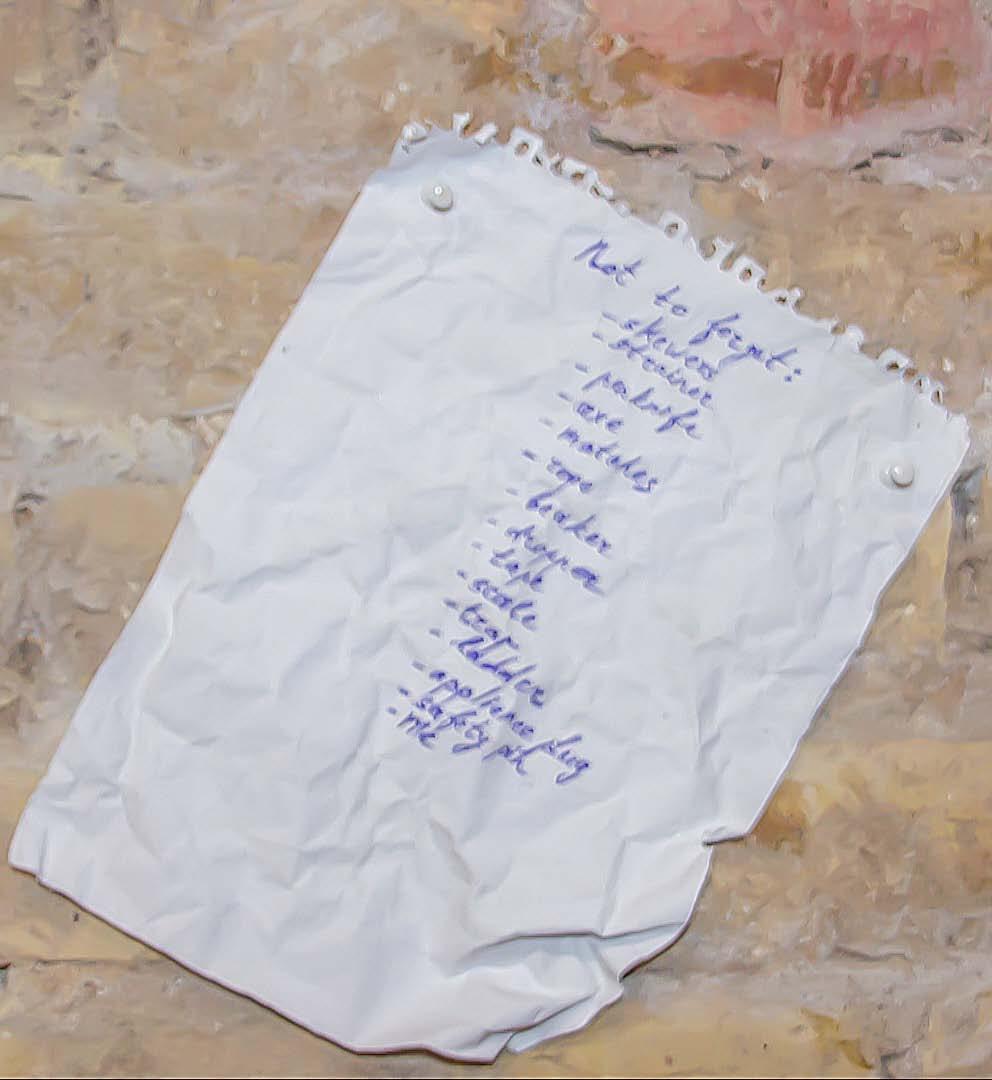 Not to forget:
- skewers
- strainer
- penknife
- axe
- matches
- rope
- beaker
- dropper
- tape
- scale
- boat
- ladder
- appliance plug
- safety pin
- ink